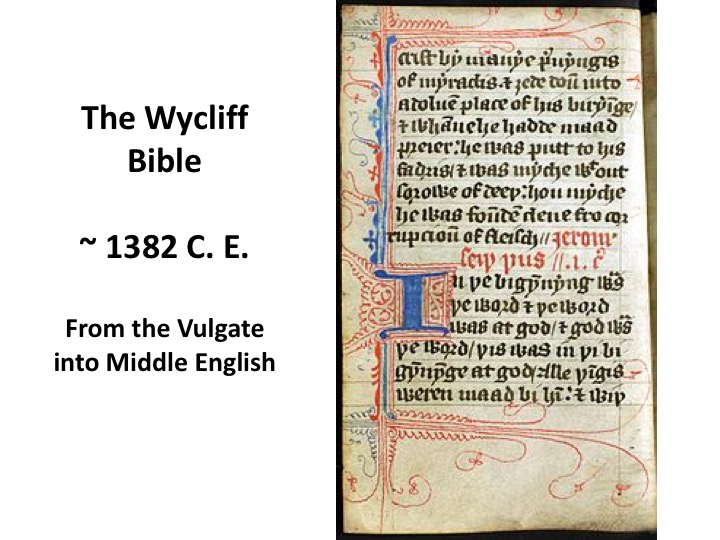 The Wycliff
Bible
~ 1382 C. E.
From the Vulgate
into Middle English
crist bẏ manẏe p̃uẏngis
of mẏraclis. ⁊ ȝede doũ into
adoluẽ place of his birẏinge/
⁊ whãne he hadde maad
preier: he was putt to his
fadris/ ⁊ was mẏche wͭout
sorowe of deeþ: hou mẏche
he was foũdẽ clene fro cor
rupcioũ of fleisch//
Jerom
seiþ þus //.i. c̃
In þe bigẏ̃nẏng was
þe word ⁊ þe word
was at god/ ⁊ god was
þe word/ þis was in þi bi
gẏ̃nẏnge at god/ Alle þĩgis
weren maad bi hĩ: ⁊ wiþ